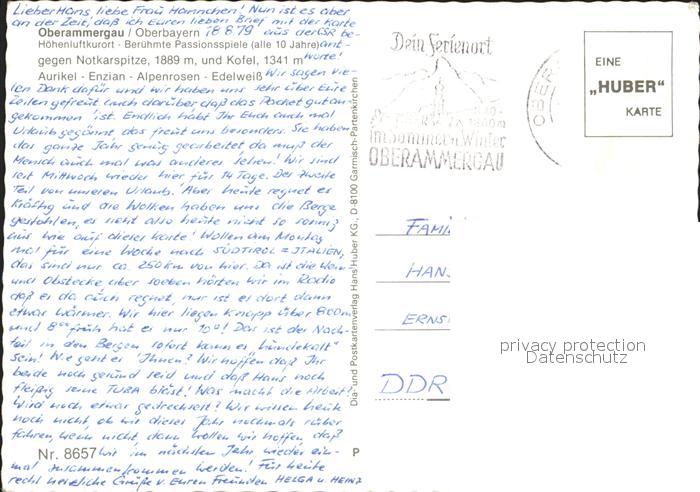 Lieber Hans, liebe Frau Hannchen! Nun ist es aber
an der Zeit, daß ich Euren lieben Brief mit der Karte
Oberammergau / Oberbayern 18.8.79 aus der ČSR be-
Höhenluftkurort - Berühmte Passionsspiele (alle 10 Jahre) ant-
gegen Notkarspitze, 1889 m, und Kofel, 1341 m worte!
Aurikel - Enzian - Alpenrosen - Edelweiß Wir sagen vie-
len Dank dafür und wir haben uns sehr über Eure
Zeilen gefreut, auch darüber daß das Packet gut an-
gekommen ist. Endlich habt Ihr Euch auch mal
Urlaub gegönnt das freut uns besonders. Sie haben
das ganze Jahr genug gearbeitet da muß der
Mensch auch mal was anderes sehen! Wir sind
seit Mittwoch wieder hier für 14 Tage. Der zweite
Teil von unseren Urlaub. Aber heute regnet es
kräftig und die Wolken haben uns die Berge
gestohlen, es sieht also heute nicht so sonnig
aus wie auf dieser Karte! Wollen am Montag
mal für eine Woche nach SÜDTIROL = ITALIEN,
das sind nur ca. 250 km von hier. Da ist die Wein
und Obstecke, aber soeben hörten wir im Radio
daß es da auch regnet, nur ist es dort dann
etwas wärmer. Wir hier liegen knapp über 800 m
und 8°° früh hat es nur 10°! Das ist der Nach-
teil in den Bergen sofort kann es "hundekalt"
sein! Wie geht es Ihnen? Wir hoffen daß Ihr
beide noch gesund seid und daß Hans noch
fleißig seine TUBA bläst! Was macht die Arbeit!
Wird noch etwas gedrechselt? Wir wissen heute
noch nicht, ob wir dieses Jahr nochmals rüber
fahren, wenn nicht, dann wollen wir hoffen, daß
Nr. 8657 wir im nächsten Jahr wieder ein-
mal zusammenkommen werden! Für heute
recht herzliche Grüße v. Euren Freunden HELGA u HEINZ
Dia- und Postkartenverlag Hans Huber KG., D-8100 Garmisch-Partenkirchen
P
Dein Ferienort
im Sommer u. Winter
OBERAMMERGAU
OBER
EINE
„HUBER"
KARTE
FAMI
HANS
ERNS
DDR
privacy protection
Datenschutz